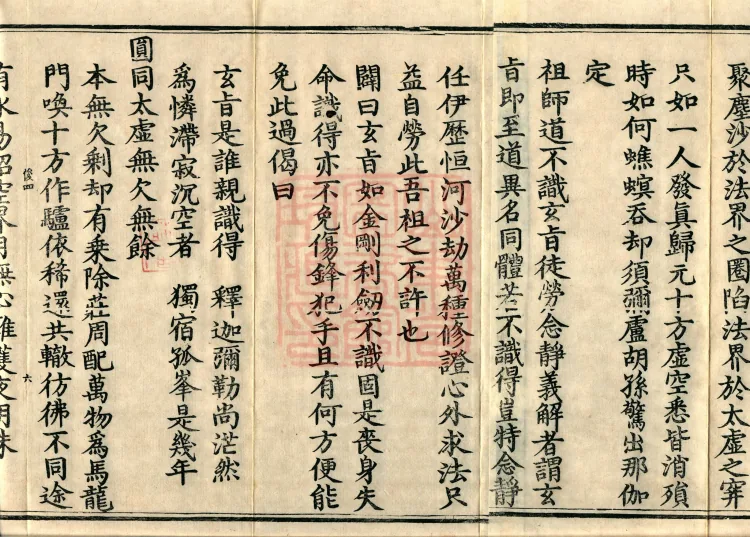 聚塵沙於法界之圈陷法界於太虛之穽
只如一人發眞歸元十方虛空悉皆消殞
時如何蟭螟吞却須彌盧胡孫驚出那伽
定
祖師道不識玄旨徒勞念靜義解者謂玄
旨即至道異名同體若不識得豈特念靜
任伊歷恒河沙劫萬種修證心外求法只
益自勞此吾祖之不許也
闢曰玄旨如金剛利劒不識固是喪身失
命識得亦不免傷鋒犯手且有何方便能
免此過偈曰
玄旨是誰親識得 釋迦彌勒尚茫然
爲憐滯寂沉空者 獨宿孤峯是幾年
圓同太虛無欠無餘
本無欠剩却有乗除莊周配萬物爲馬龍
門喚十方作驢依稀還共轍彷彿不同途
俊四
六